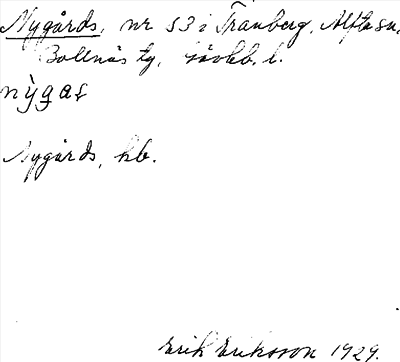 Nygårds, nr 53 i Tranberg, Alfta sn,
Bollnäs tg, Gävleb. l.
nỳgaṣ
Nygårds, hb.
Erik Eriksson 1929.